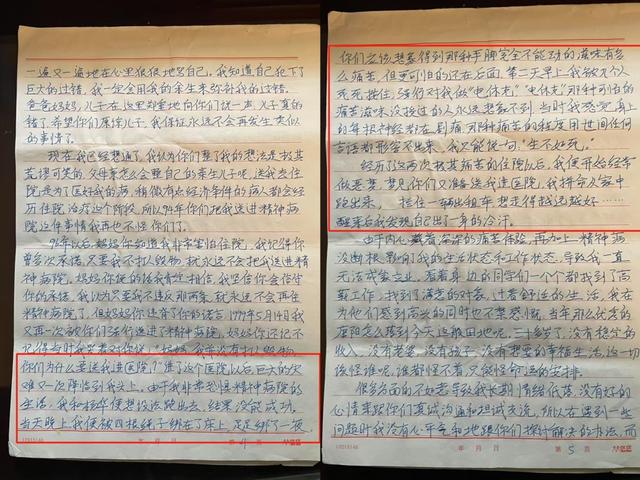 一遍又一遍地在心里狠狠地骂自己。我知道自己犯下了
巨大的过错。我一定会用我的余生来弥补我的过错。
爸爸妈妈，儿子在这里郑重地向你们说一声，儿子真的
错了，希望你们原谅儿子，我保证永远不会再发生类似
的事情了。
现在我已经想通了，我认为你们害了我的想法是极其
荒谬可笑的。父母亲怎么会害自己的亲生儿子呢，送我去住
院是为了医好我的病，稍微有点经济条件的病人都会经
历住院治疗这个阶段，所以94年你们把我送进精神病
院这件事情我再也不怪你们了。
94年以后妈妈你知道我非常害怕住院，我记得你
曾多次承诺，只要我不打人毁物，就永远不会把我送进精
神病院。妈妈你说的话我肯定相信，我坚信你会信守
你的承诺，我以为只要我不违反那两条，就永远不会再住
精神病院了。但妈妈你违背了你的诺言，1997年5月14日我
又再一次被你们强行送进了精神病院，妈妈你还记不
记得当时我哭着对你说，“妈妈，我并没有打人毁物，
你们为什么要送我进医院？”进了这个医院以后巨大的灾
难又一次降临到我头上。由于我非常恐惧精神病院的
生活，我和
便想设法跑出去，结果没能成功。
当天晚上我便被四根绳子绑在了床上，足足绑了一夜
年 月 日
第 4 页
你们应该想象得到那种手脚完全不能动的滋味有多
么痛苦，但更可怕的还在后面。第二天早上我被几个人
死死按住，强行对我做“电休克”。“电休克”那种可怕的
痛苦滋味没接过的人永远想象不到，当时我感觉身上
的每根神经都在剧痛，那种痛苦的程度用世间任何
言语都形容不出来，我只能说一句，“生不如死。”
经历了这两次极其痛苦的住院以后，我便开始经常
做恶梦，梦见你们又准备送我进医院，我拼命从家中
跑出来，拦住一辆出租车想走得越远越好……
醒来后我发现自己出了一身的冷汗。
由于内心藏着深深的痛苦体验，再加上精神病
没断根，影响了我的生活状态和工作状态，导致我一直
无法成家立业。看着身边的同学们一个个都找到了高
薪工作，找到了满意的对象，过着舒适的生活，我在
为他们感到高兴的同时也不禁悲伤，当年那么优秀的
怎么落到今天这般田地呢，三十多岁了，没有稳定的
收入，没有老婆，没有孩子，没有想要的幸福生活，这一切
该怪谁呢，谁都怪不着，只能怪命运的安排。
很多方面的不如意导致我长期情绪低落，没有好的
心情来跟你们真诚沟通和坦诚交流，所以在遇到一些
问题时我没有心平气和地跟你们探讨解决的办法，而
年 月 日
第 5 页